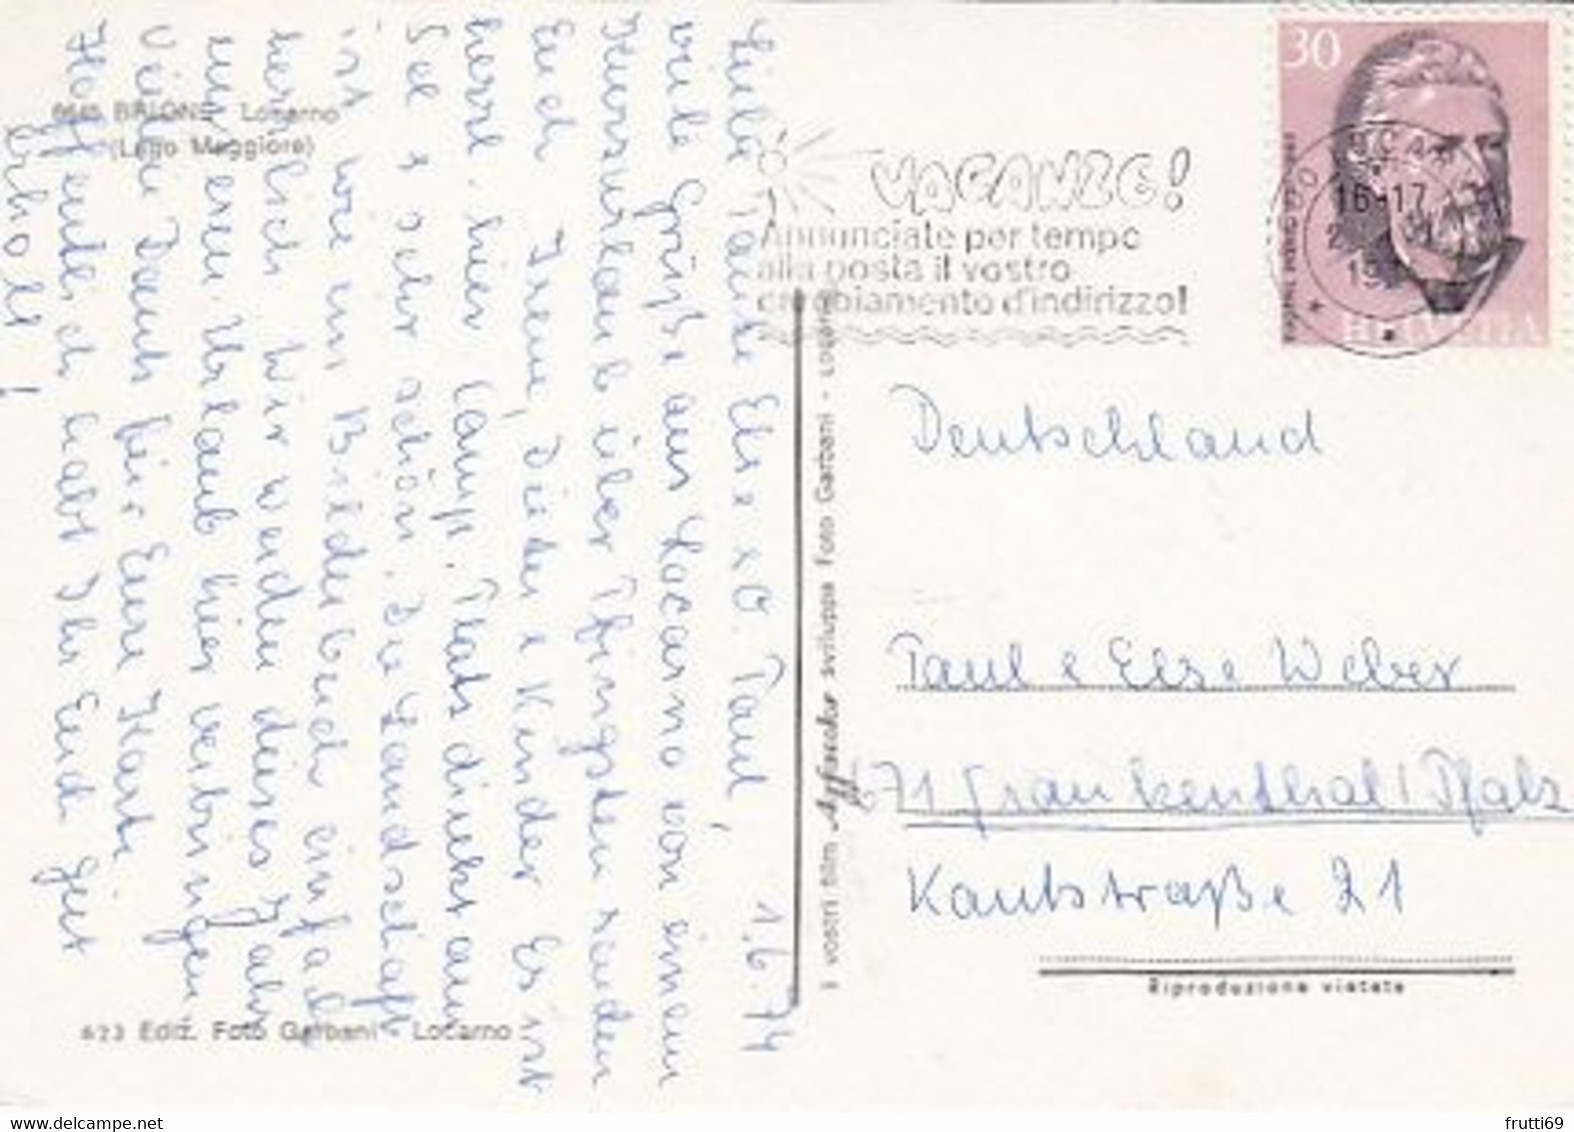 Liebe Tante Else & O. Paul, 1.6.74
viele Grüße aus Locarno von einem
Kurzurlaub über Pfingsten senden
Euch Irene, Dieter & Kinder. Es ist
herrl. hier Camp. Platz direkt am
See & sehr schön. Die Landschaft
ist wie im Bilderbuch einfach
herrlich. Wir werden dieses Jahr
unseren Urlaub hier verbringen
Vielen Dank für Eure Karte
Hoffentlich habt Ihr Euch gut
erholt!
6645 BRIONE - Locarno
(Lago Maggiore)
623 Ediz. Foto Garbani - Locarno
I vostri film sviluppa Foto Garbani - Locarno
VACANZE!
Annunciate per tempo
alla posta il vostro
cambiamento d'indirizzo!
30
HELVETIA
16-17
Deutschland
Paul & Else Weber
671 Frankenthal / Pfalz
Kantstraße 21
Riproduzione vietata
frutti69